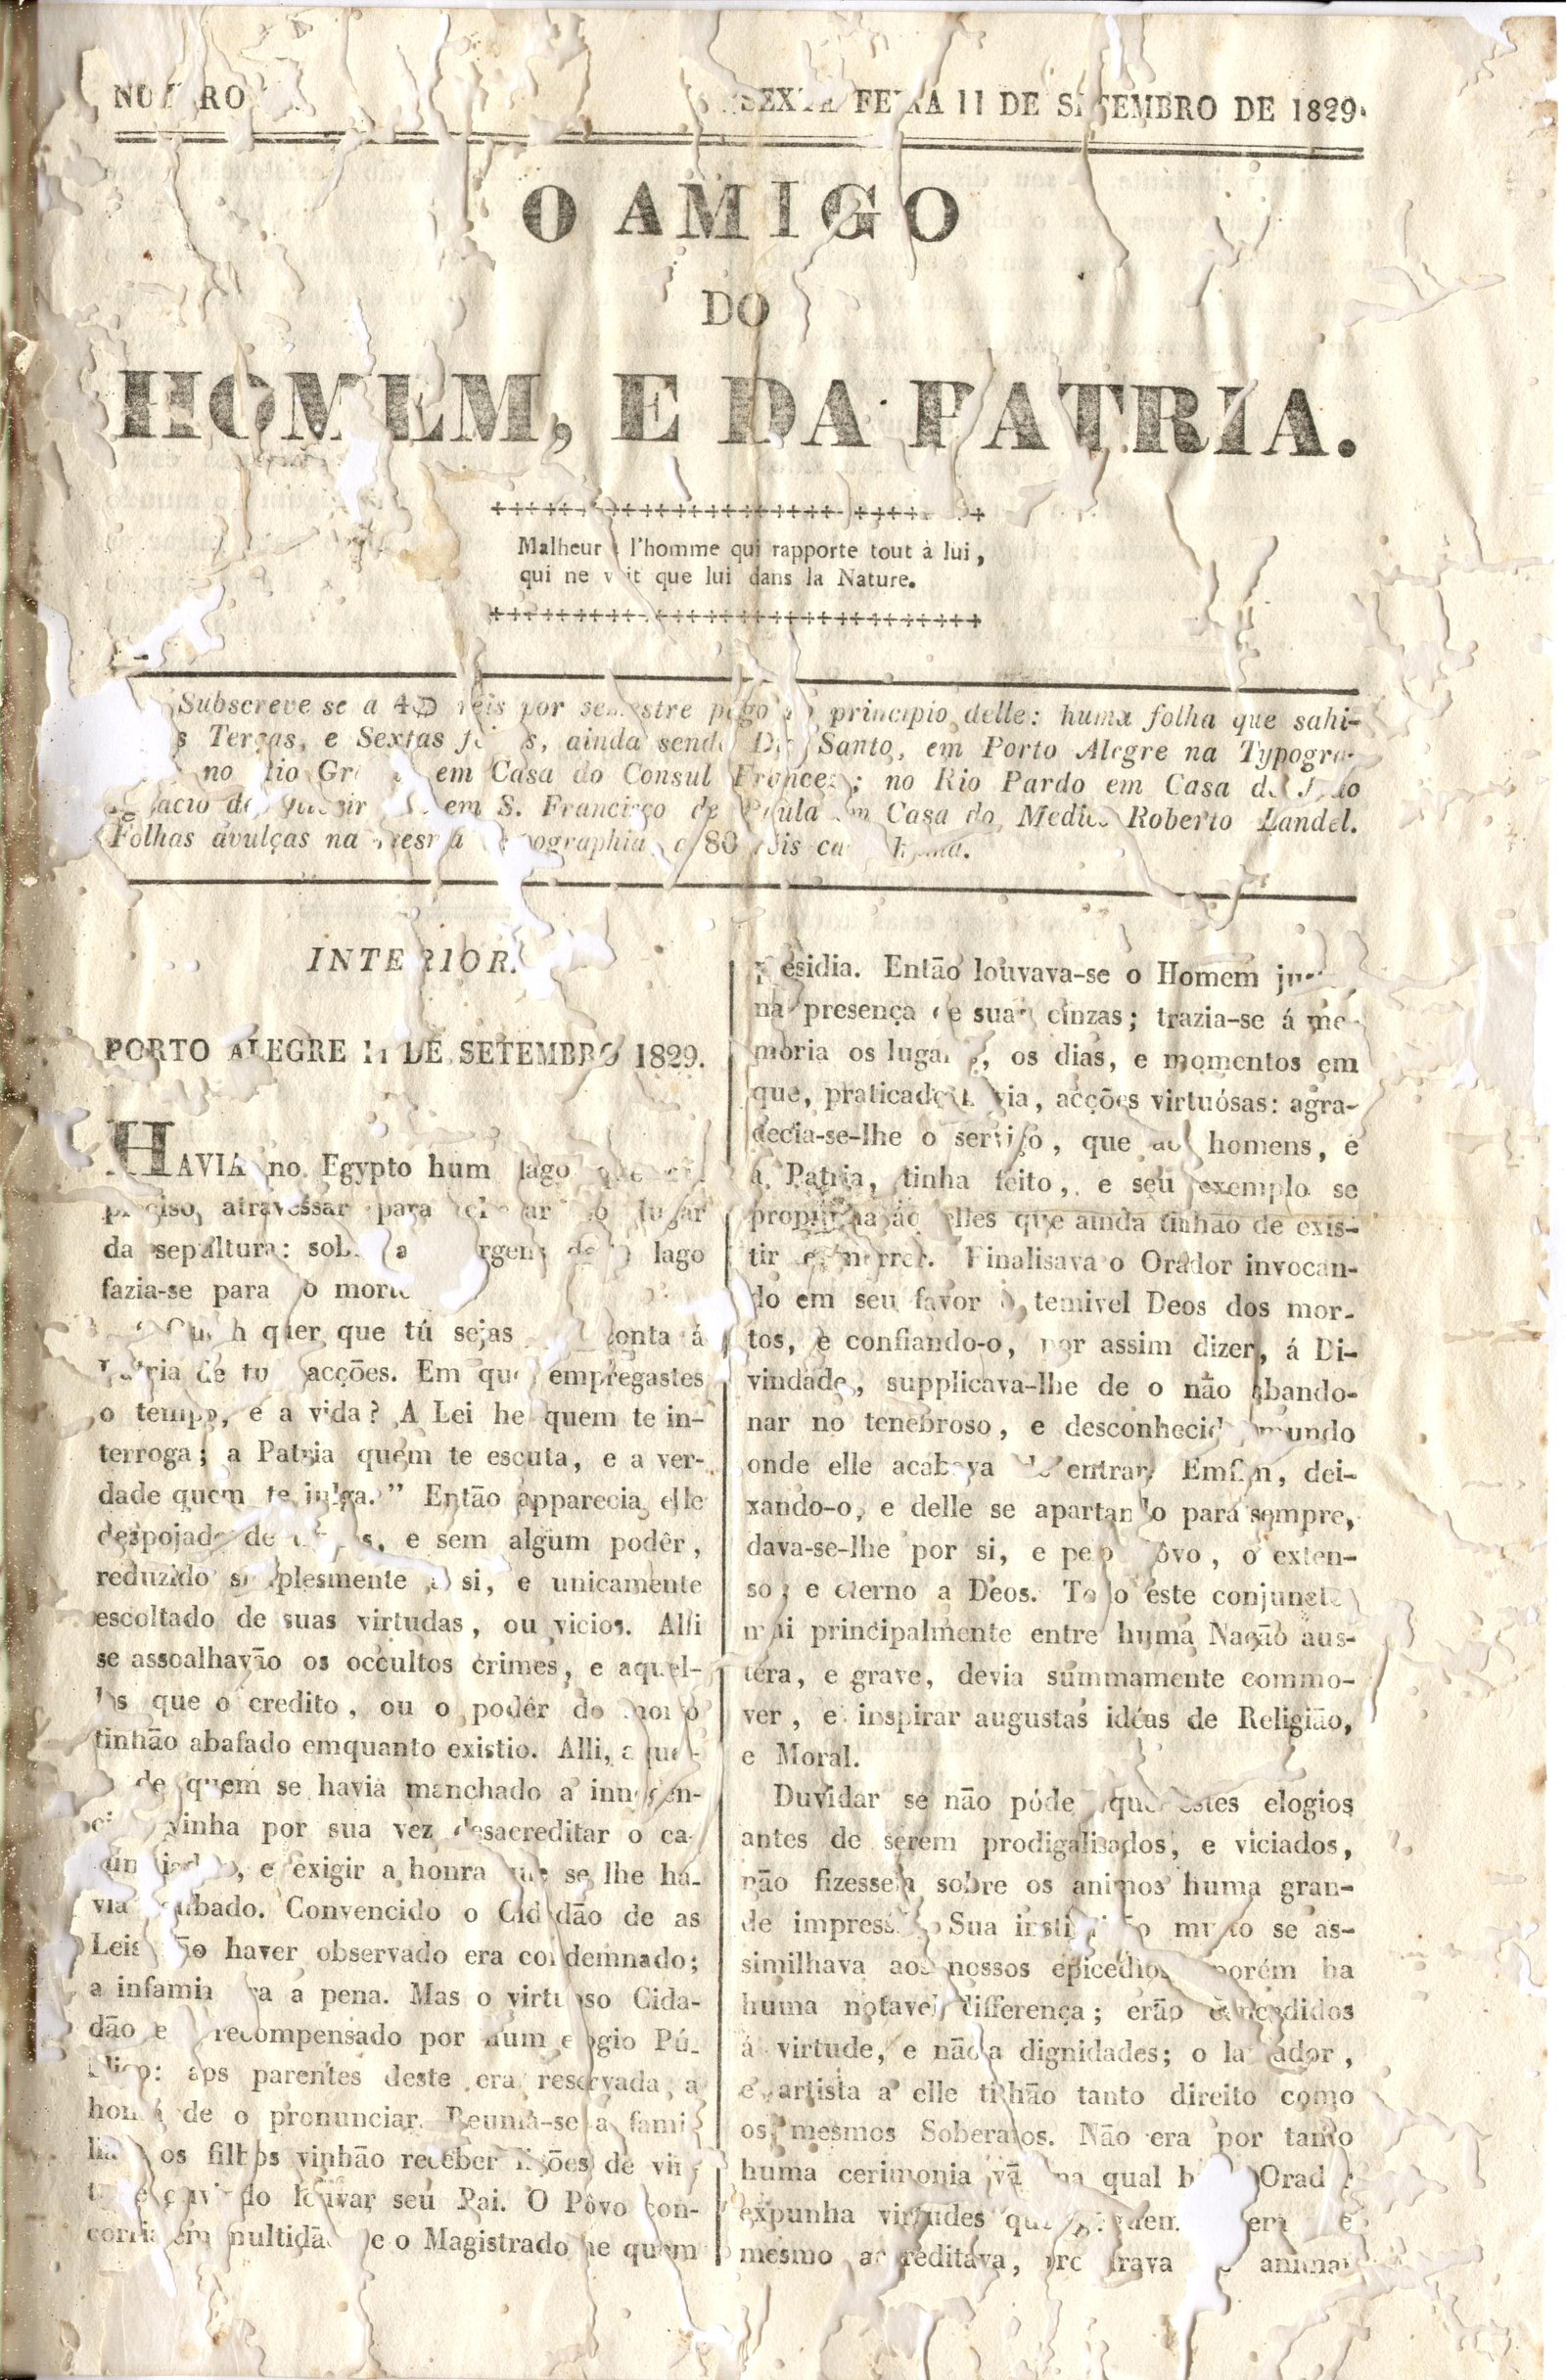 SEXTA FEIRA 11 DE SETEMBRO DE 1829.
O AMIGO
DO
HOMEM, E DA PATRIA.
Malheur l'homme qui rapporte tout à lui,
qui ne voit que lui dans la Nature.
Subscreve se a reis por semestre pago principio delle: huma folha que sahi-
Terças, e Sextas ainda sendo Santo, em Porto Alegre na Typogra-
no Rio em Casa do Consul Francez; no Rio Pardo em Casa de
em S. Francisco de Paula em Casa do Medico Roberto Landel.
Folhas avulças na mesma a 80 reis
INTERIOR.
PORTO ALEGRE 11 DE SETEMBRO 1829.
HAVIA no Egypto hum lago que
preciso atravessar para lugar
da sepultura: lago
fazia-se para o
quer que tú sejas conta á
Patria de acções. Em que empregastes
o tempo, e a vida? A Lei he quem te in-
terroga; a Patria quem te escuta, e a ver-
dade quem te julga." Então apparecia elle
despojado de e sem algum podêr,
reduzido simplesmente a si, e unicamente
escoltado de suas virtudas, ou vicios. Alli
se assoalhavão os occultos crimes, e aquel-
les que o credito, ou o podêr do morto
tinhão abafado emquanto existio. Alli,
de quem se havia manchado a innocen-
vinha por sua vez desacreditar o ca-
e exigir a honra que se lhe ha-
via roubado. Convencido o Cidadão de as
Leis não haver observado era condemnado;
a infamia era a pena. Mas o virtuoso Cida-
dão era recompensado por hum elogio Pú-
blico: aos parentes deste era reservada a
honra de o pronunciar. Reunia-se a fami-
lia os filhos vinhão receber lições de vir-
ouvindo louvar seu Pai. O Pôvo con-
corria em multidão e o Magistrado he quem
presidia. Então louvava-se o Homem
na presença de suas cinzas; trazia-se á me-
moria os lugares, os dias, e momentos em
que, praticado havia, acções virtuósas: agra-
decia-se-lhe o serviço, que aos homens, e
á Patria, tinha feito, e seu exemplo se
propunha áquelles que ainda tinhão de exis-
tir e morrer. Finalisava o Orador invocan-
do em seu favor o temivel Deos dos mor-
tos, e confiando-o, por assim dizer, á Di-
vindade, supplicava-lhe de o não abando-
nar no tenebroso, e desconhecido mundo
onde elle acabava de entrar. Emfim, dei-
xando-o, e delle se apartando para sempre,
dava-se-lhe por si, e pelo Pôvo, o exten-
so, e eterno a Deos. Todo este conjuncto
mui principalmente entre huma Nação aus-
téra, e grave, devia summamente commo-
ver, e inspirar augustas idéas de Religião,
e Moral.
Duvidar se não póde que estes elogios
antes de serem prodigalisados, e viciados,
não fizessem sobre os animos huma gran-
de impressão Sua instituição muito se as-
similhava aos nossos epicedios porém ha
huma notavel differença; erão concedidos
á virtude, e não a dignidades; o lavrador,
e artista a elle tinhão tanto direito como
os mesmos Soberanos. Não era por tanto
huma cerimonia vã na qual Orador
expunha virtudes que ninguem
mesmo acreditava, procurava animar